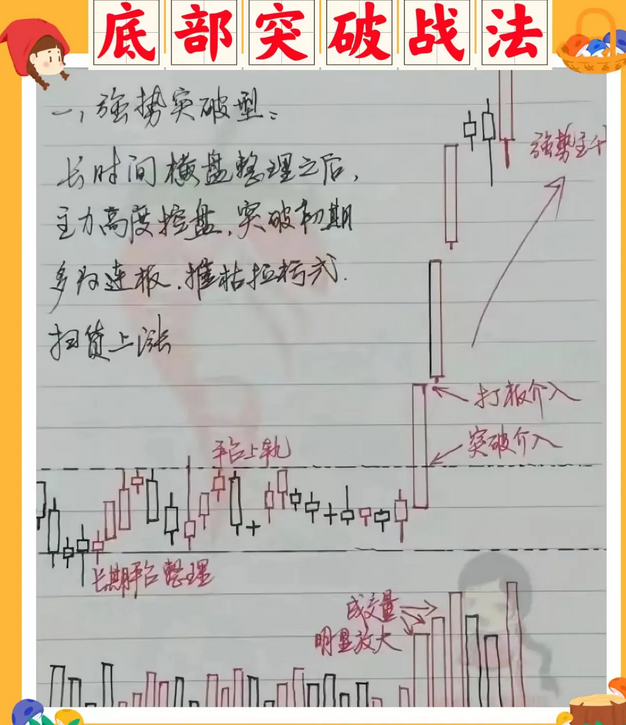 底部突破战法
一、强势突破型:
长时间横盘整理之后,
主力高度控盘,突破初期
多为连板,摧枯拉朽式
扫货上涨
强势主升
打板介入
突破介入
平台上轨
长期平台整理
成交量
明显放大